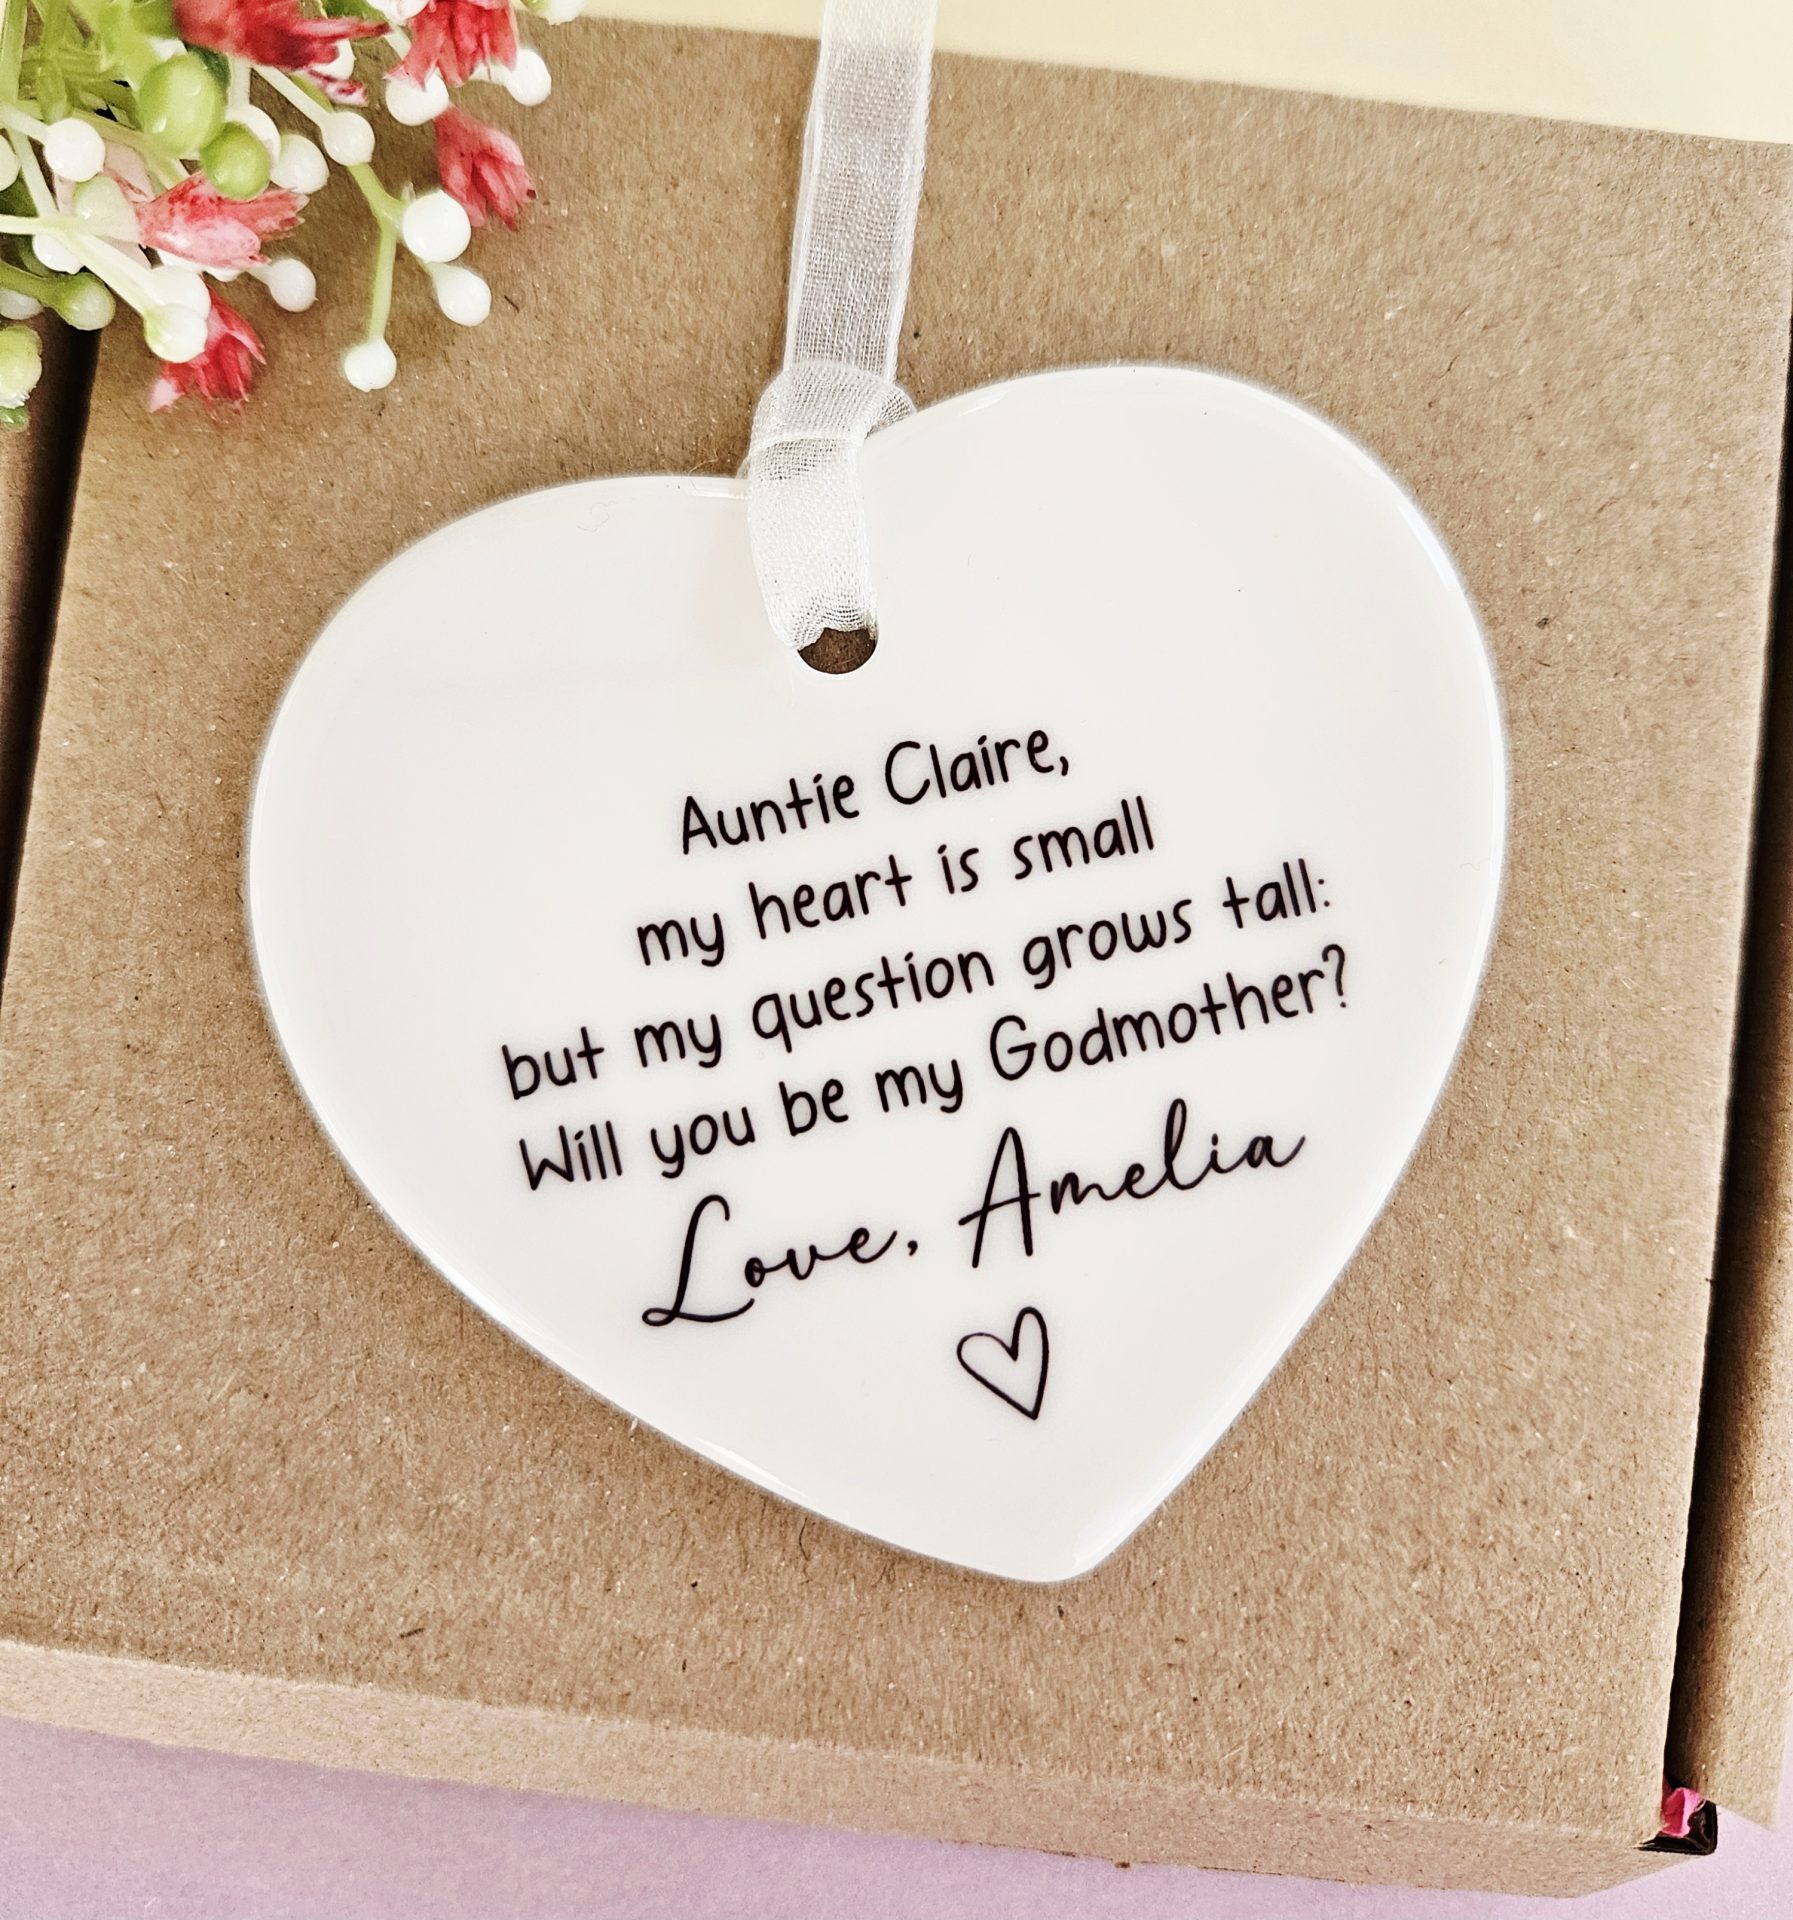 Auntie Claire,
my heart is small
but my question grows tall:
Will you be my Godmother?
Love, Amelia